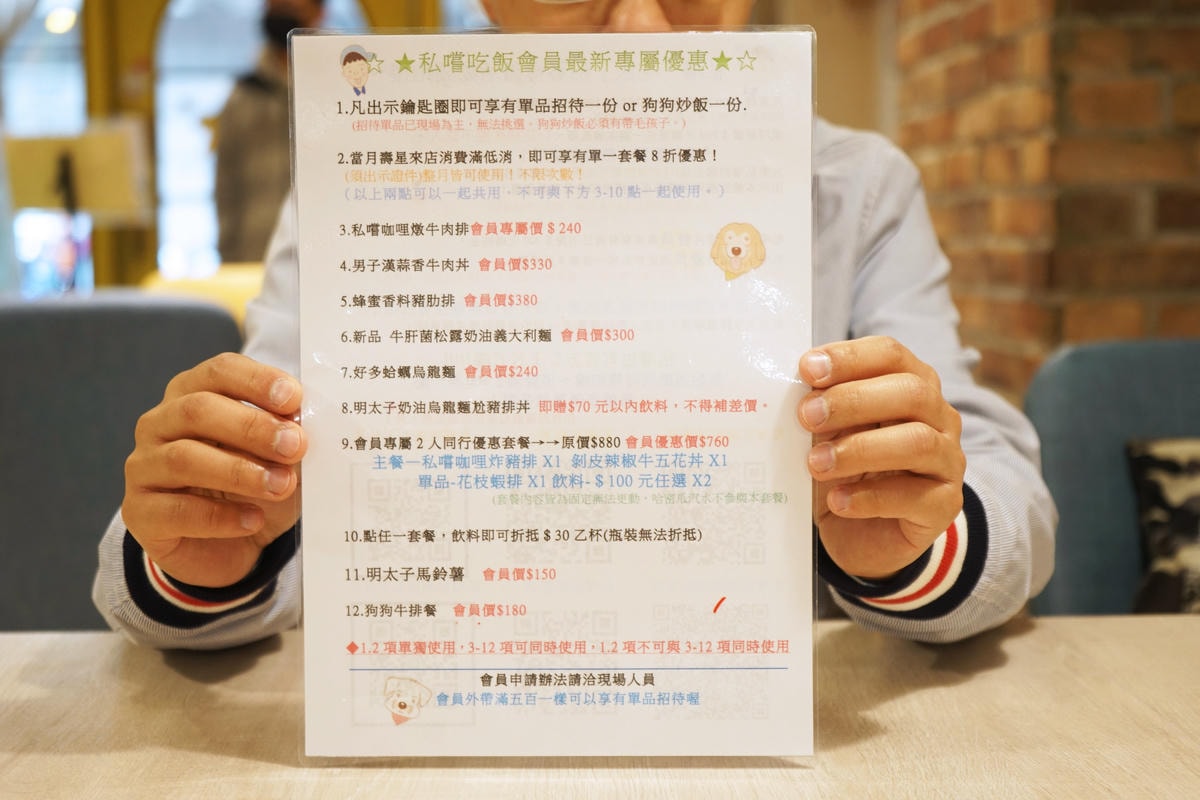 ☆ ★私嚐吃飯會員最新專屬優惠★☆
1.凡出示鑰匙圈即可享有單品招待一份 or 狗狗炒飯一份.
(招待單品已現場為主，無法挑選。狗狗炒飯必須有帶毛孩子。)
2.當月壽星來店消費滿低消，即可享有單一套餐 8 折優惠！
(須出示證件)整月皆可使用！不限次數！
（以上兩點可以一起共用。不可與下方 3-10 點一起使用。）
3.私嚐咖哩燉牛肉排會員專屬價 $ 240
4.男子漢蒜香牛肉丼 會員價$330
5.蜂蜜香料豬肋排 會員價$380
6.新品 牛肝菌松露奶油義大利麵 會員價$300
7.好多蛤蠣烏龍麵 會員價$240
8.明太子奶油烏龍麵尬豬排丼 即贈$70 元以內飲料，不得補差價。
9.會員專屬 2 人同行優惠套餐→→原價$880 會員優惠價$760
主餐—私嚐咖哩炸豬排 X1 剝皮辣椒牛五花丼 X1
單品-花枝蝦排 X1 飲料-＄100 元任選 X2
(套餐內容皆為固定無法更動，哈密瓜汽水不參與本套餐)
10.點任一套餐，飲料即可折抵＄30 乙杯(瓶裝無法折抵)
11.明太子馬鈴薯 會員價$150
12.狗狗牛排餐 會員價$180
◆1.2 項單獨使用，3-12 項可同時使用，1.2 項不可與 3-12 項同時使用
會員申請辦法請洽現場人員
會員外帶滿五百一樣可以享有單品招待喔